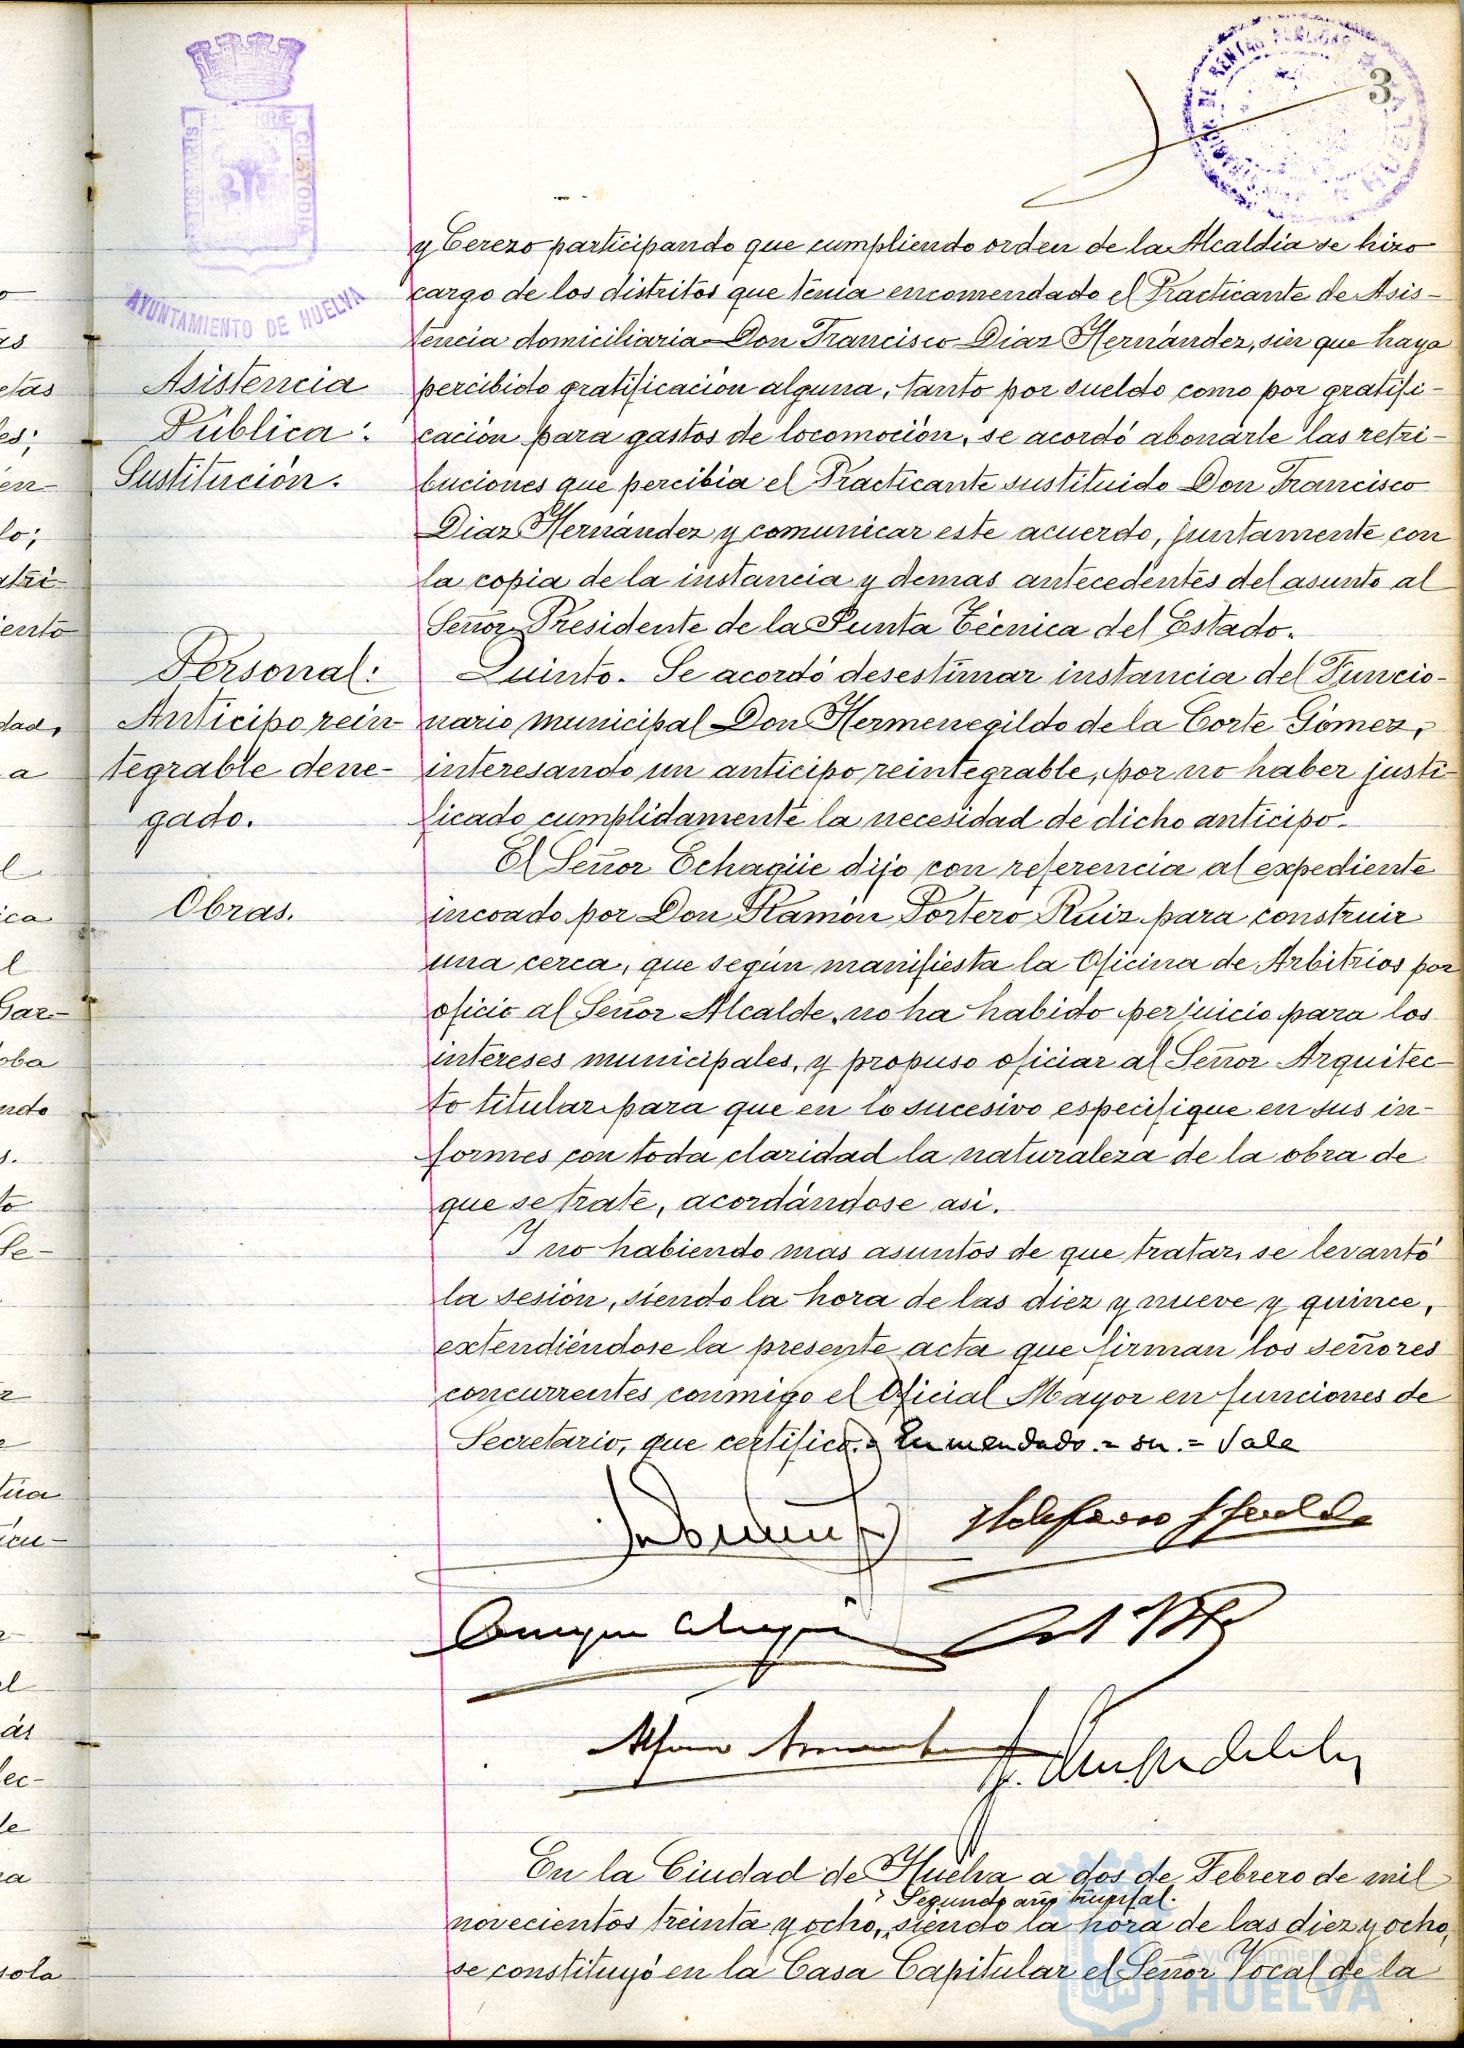 3
AYUNTAMIENTO DE HUELVA
CUSTODIA
y Cerezo participando que cumpliendo orden de la Alcaldía se hizo
cargo de los distritos que tenía encomendado el Practicante de Asis-
tencia domiciliaria Don Francisco Diaz Hernández, sin que haya
Asistencia
percibido gratificación alguna, tanto por sueldo como por gratifi-
Pública:
cación para gastos de locomoción, se acordó abonarle las retri-
Sustitución.
buciones que percibía el Practicante sustituido Don Francisco
Diaz Hernández y comunicar este acuerdo, juntamente con
la copia de la instancia y demas antecedentes del asunto al
Señor Presidente de la Junta Técnica del Estado.
Personal:
Quinto. Se acordó desestimar instancia del Funcio-
Anticipo rein-
nario municipal Don Hermenegildo de la Corte Gómez,
tegrable dene-
interesando un anticipo reintegrable, por no haber justi-
gado.
ficado cumplidamente la necesidad de dicho anticipo.
El Señor Echagüe dijo con referencia al expediente
Obras.
incoado por Don Ramón Portero Ruiz para construir
una cerca, que según manifiesta la Oficina de Arbitrios por
oficio al Señor Alcalde, no ha habido perjuicio para los
intereses municipales, y propuso oficiar al Señor Arquitec-
to titular para que en lo sucesivo especifique en sus in-
formes con toda claridad la naturaleza de la obra de
que se trate, acordándose asi.
Y no habiendo mas asuntos de que tratar, se levantó
la sesión, siendo la hora de las diez y nueve y quince,
extendiéndose la presente acta que firman los señores
concurrentes conmigo el Oficial Mayor en funciones de
Secretario, que certifico.= Enmendado.= on.= Vale
En la Ciudad de Huelva a dos de Febrero de mil
Segundo año triunfal.
novecientos treinta y ocho, siendo la hora de las diez y ocho,
se constituyó en la Casa Capitular el Señor Vocal de la
Ayuntamiento de
HUELVA